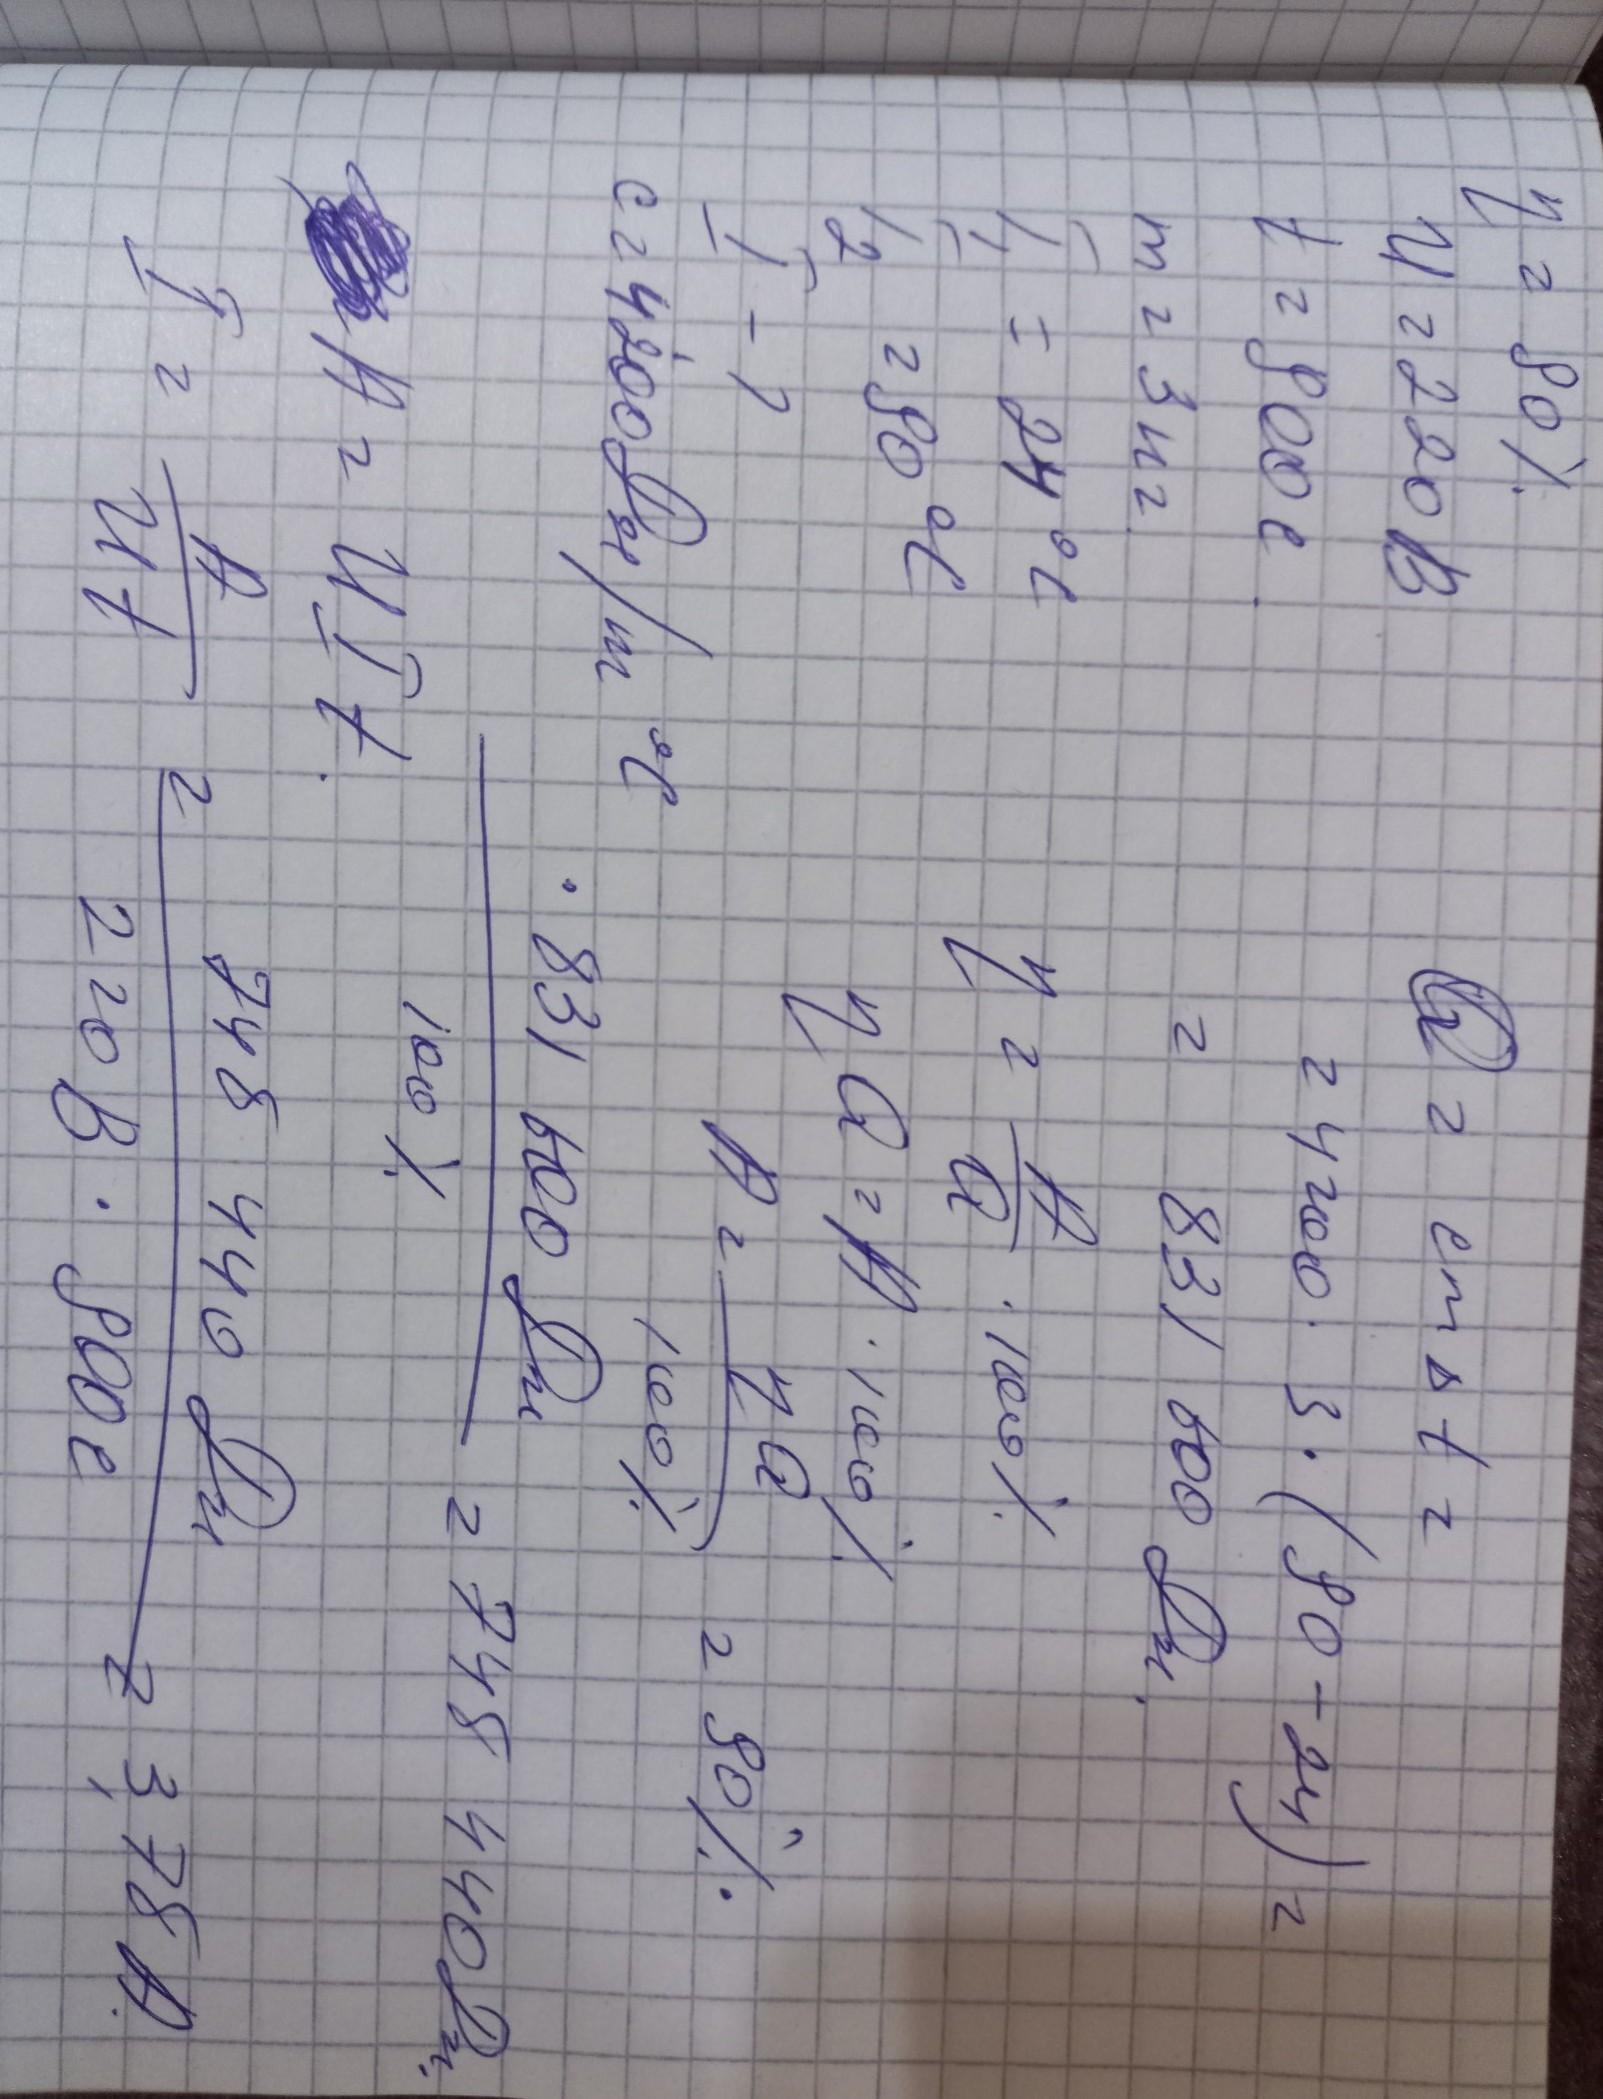 η = 90%.
U = 220 В
t = 900 с.
m = 3 кг.
T₁ = 24 °C
T₂ = 90 °C
I - ?
c = 4200 Дж/m °C
Q = cmΔt =
= 4200 · 3 · (90 - 24) =
= 831 600 Дж.
η = A/Q · 100%
ηQ = A · 100%
A = ηQ/100% = 90%.
· 831 600 Дж/100% = 748 440 Дж.
A = UIt.
I = A/Ut = 748 440 Дж/220 В · 900 с = 3,78 А.